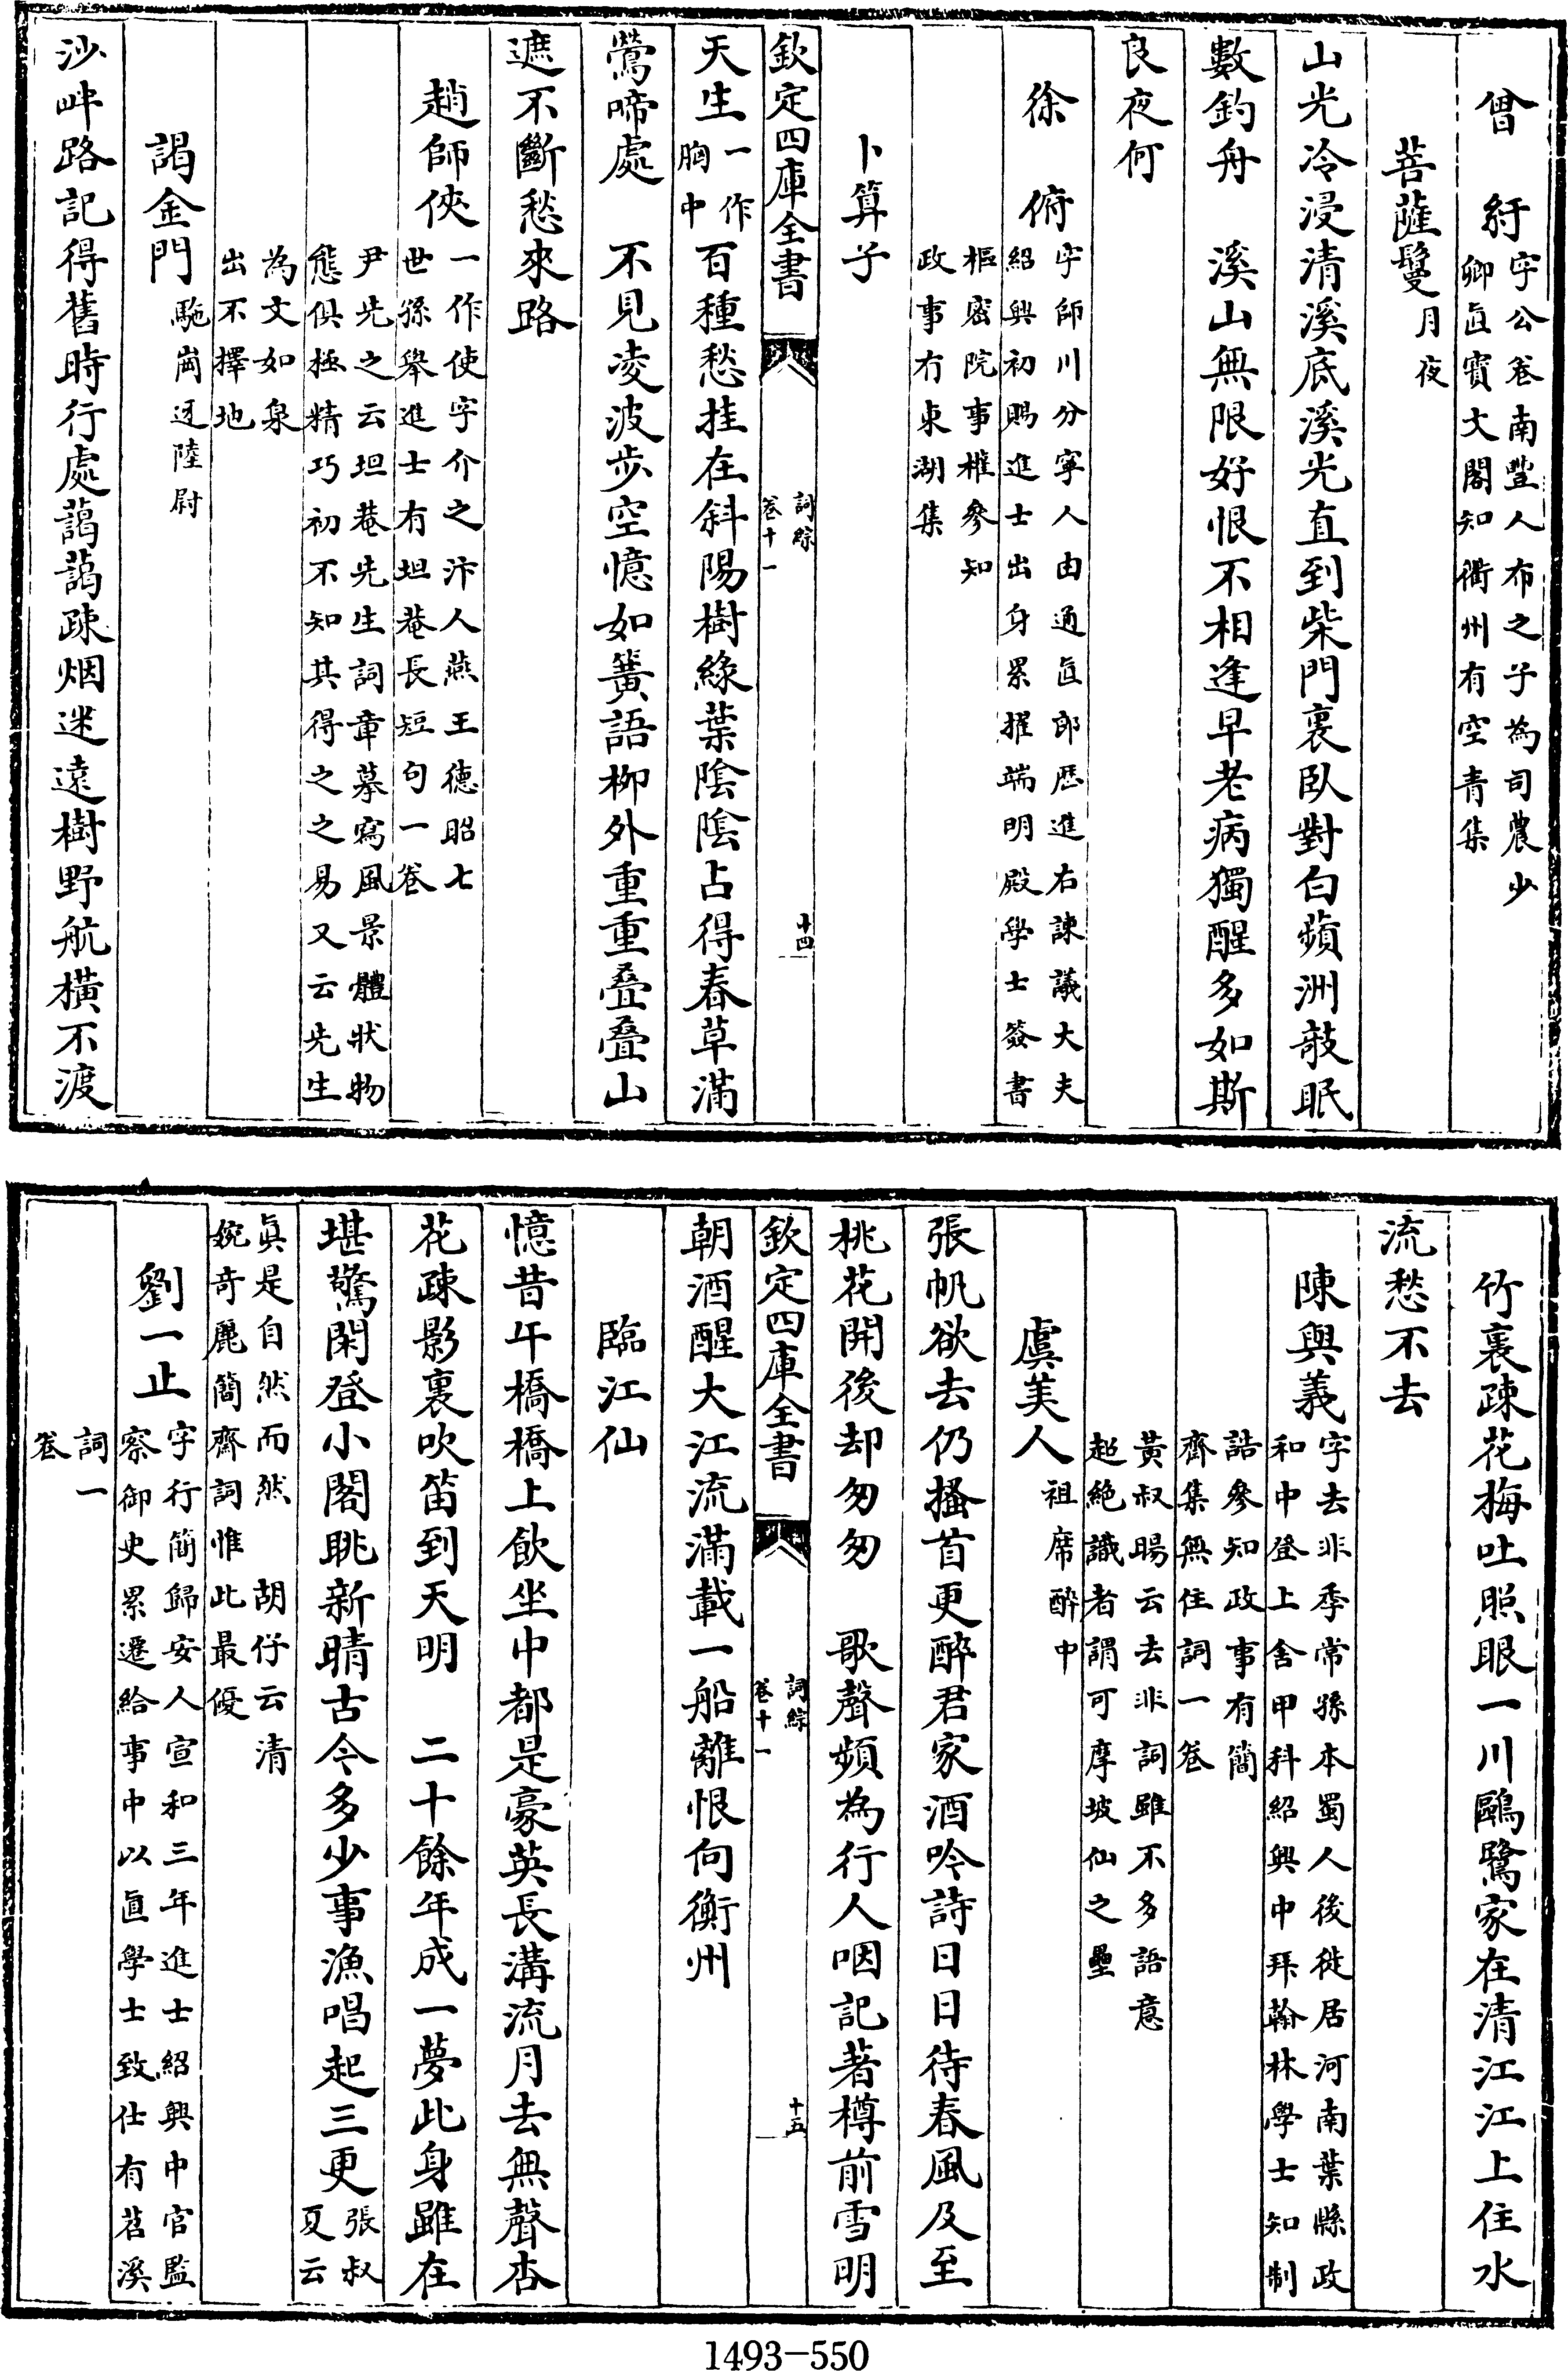 曾紆字公卷南豐人布之子為司農少卿直寳文閣知衢州有空青集
菩薩鬘月夜
山光冷浸清溪底溪光直到柴門裏臥對白蘋洲敧眠
數釣舟　溪山無限好恨不相逢早老病獨醒多如斯
良夜何
徐俯字師川分寧人由通直郎歴進右諫議大夫紹興初賜進士出身累擢端明殿學士簽書
樞密院事權參知政事有東湖集
卜算子
欽定四庫全書　詞綜卷十一　十四
天生一作胸中百種愁挂在斜陽樹綠葉陰陰占得春草滿
鶯啼處　不見凌波步空憶如簧語柳外重重叠叠山
遮不斷愁來路
趙師俠一作使字介之汴人燕王德昭七世孫舉進士有坦菴長短句一卷
尹先之云坦菴先生詞章摹寫風景體狀物態俱極精巧初不知其得之之易又云先生
為文如泉出不擇地
謁金門駞崗迓陸尉
沙畔路記得舊時行處藹藹疎烟迷遠樹野航橫不渡
竹裏疎花梅吐照眼一川鷗鷺家在清江江上住水
流愁不去
陳與義字去非季常孫本蜀人後徙居河南葉縣政和中登上舍甲科紹興中拜翰林學士知制
誥參知政事有簡齊集無住詞一卷
黃叔暘云去非詞雖不多語意超絶識者謂可摩坡仙之壘
虞美人祖席醉中
張帆欲去仍搔首更醉君家酒吟詩日日待春風及至
桃花開後却匆匆　歌聲頻為行人咽記著樽前雪明
欽定四庫全書　詞綜卷十一　十五
朝酒醒大江流滿載一船離恨向衡州
臨江仙
憶昔午橋橋上飲坐中都是豪英長溝流月去無聲杏
花疎影裏吹笛到天明　二十餘年成一夢此身雖在
堪驚閑登小閣眺新晴古今多少事漁唱起三更張叔夏云
真是自然而然　胡仔云清婉奇麗簡齊詞惟此最優
劉一止字行簡歸安人宣和三年進士紹興中官監察御史累遷給事中以直學士致仕有苕溪
詞一卷
1493-550